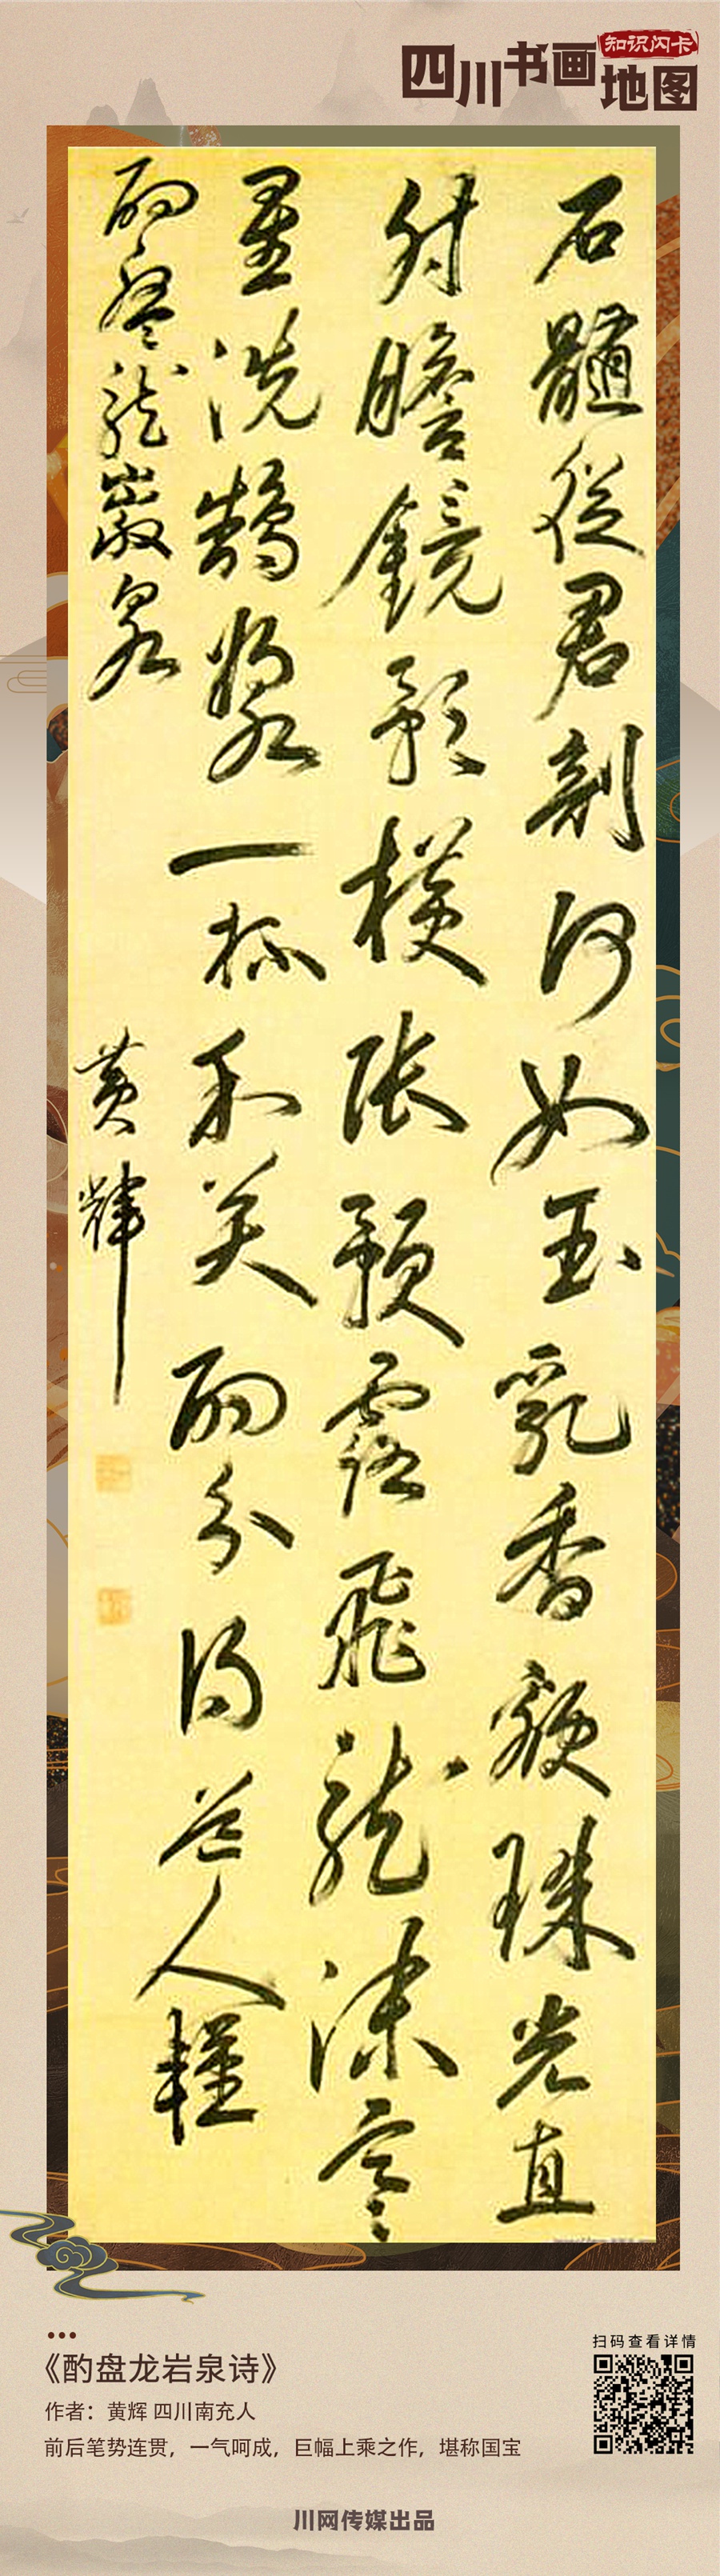 四川书画地图
知识闪卡
石髓从君剖何如玉乳香额珠光直
射胆镜影横张预露飞龙沫寒
星洗鹊浆一杯和美酌分得益人轻
酌盘龙岩泉
黄辉
《酌盘龙岩泉诗》
作者：黄辉 四川南充人
前后笔势连贯，一气呵成，巨幅上乘之作，堪称国宝
扫码查看详情
川网传媒出品